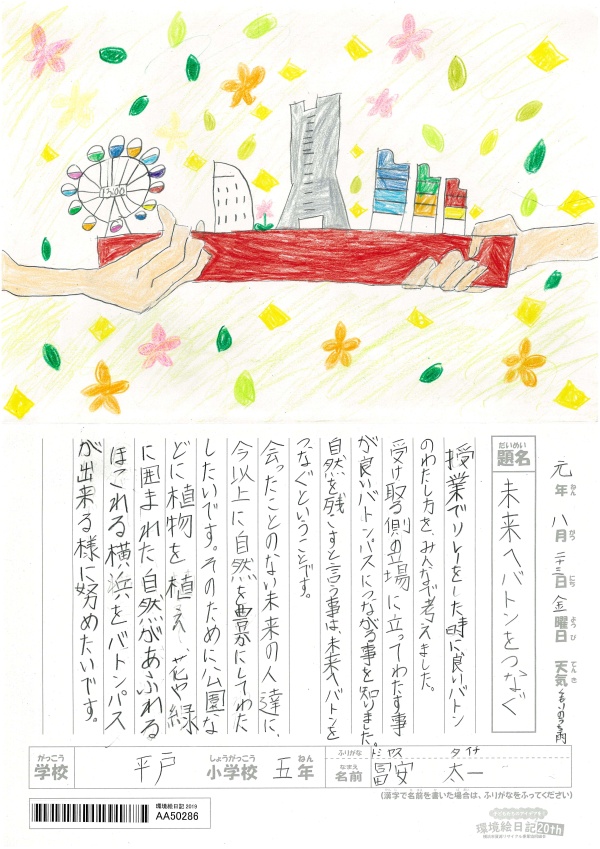 13:00
元年 八月 二十三日 金曜日 天気 くもりのち雨
ねん がつ にち ようび てんき
だいめい
題名 未来へバトンをつなぐ
授業でリレーをした時に良いバトン
のわたし方を、みんなで考えました。
受け取る側の立場に立ってわたす事
が良いバトンパスにつながる事を知りました。
自然を残こすと言う事は、未来へバトンを
つなぐということです。
会ったことのない未来の人達に、
今以上に自然を豊かにしてわた
したいです。そのために公園な
どに植物を植え、花や緑
に囲まれた自然があふれる
ほこれる横浜をバトンパス
が出来る様に努めたいです。
がっこう しょうがっこう ねん
学校 平戸 小学校 五年
ふりがな トミヤス タイチ
なまえ
名前 冨安 太一
(漢字で名前を書いた場合は、ふりがなをふってください)
環境絵日記2019
AA50286
環境絵日記20th